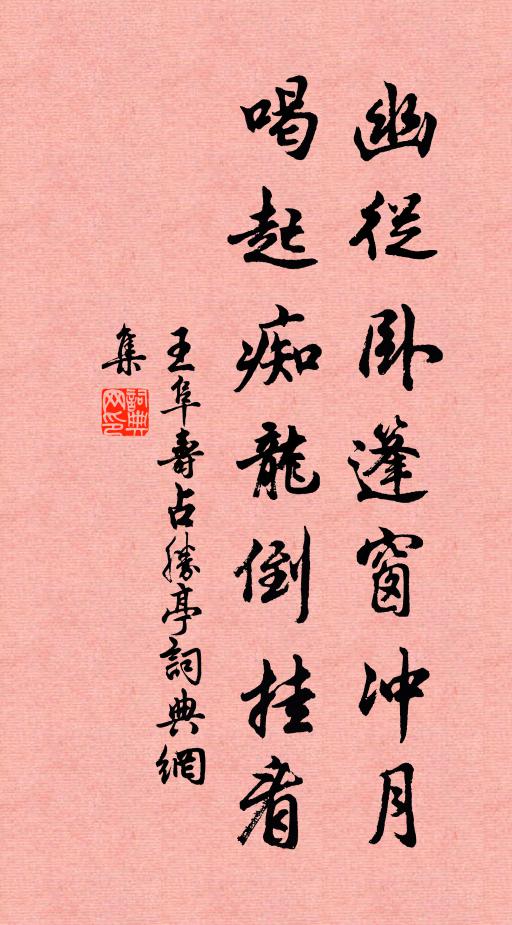 幽從卧篷窗冲月
喝起痴龍倒挂看
王阜壽占勝亭詞典網
集
詞典
网印